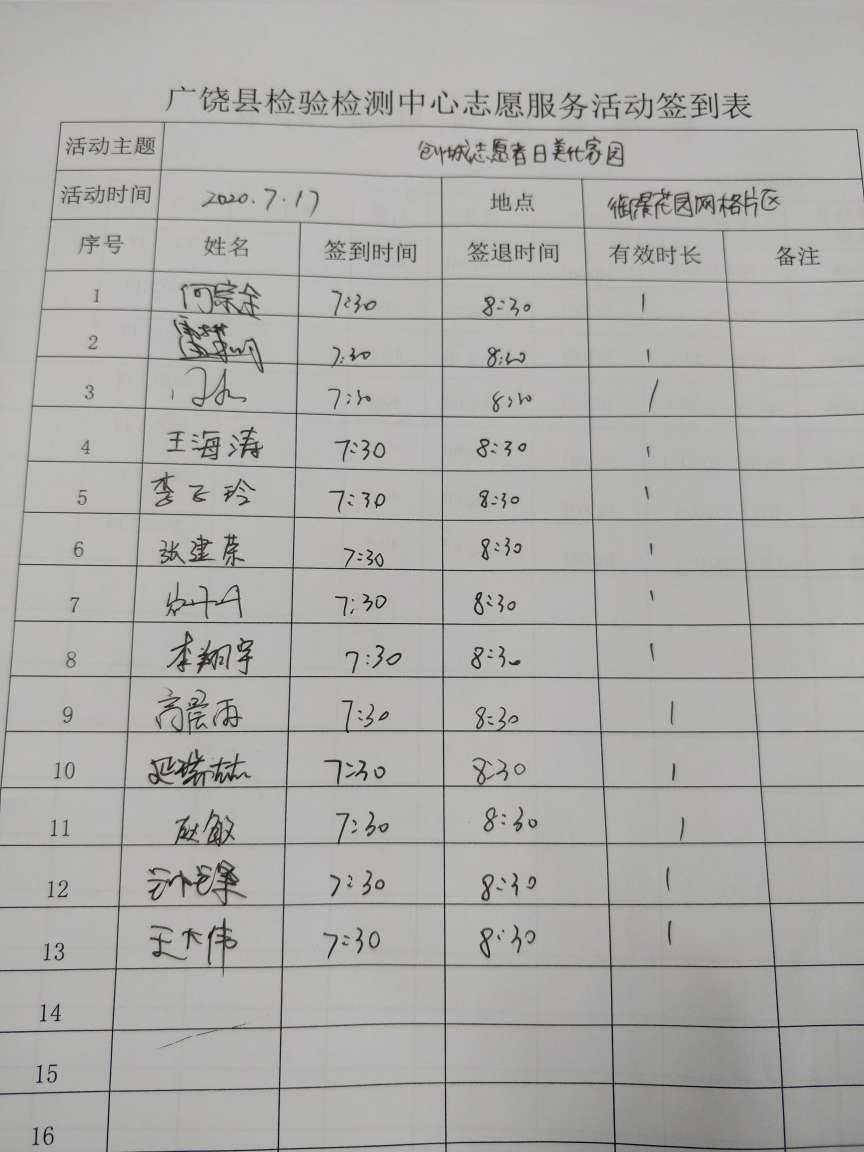 广饶县检验检测中心志愿服务活动签到表
活动主题 创城志愿者日美化家园
活动时间 2020.7.17 地点 花园网格片区
序号 姓名 签到时间 签退时间 有效时长 备注
1 何宗全 7:30 8:30 1
2 7:30 8:30 1
3 7:30 8:30 1
4 王海涛 7:30 8:30 1
5 李飞玲 7:30 8:30 1
6 张建荣 7:30 8:30 1
7 7:30 8:30 1
8 李翔宇 7:30 8:30 1
9 高晨雨 7:30 8:30 1
10 延瑞喆 7:30 8:30 1
11 耿敏 7:30 8:30 1
12 7:30 8:30 1
13 王大伟 7:30 8:30 1
14
15
16